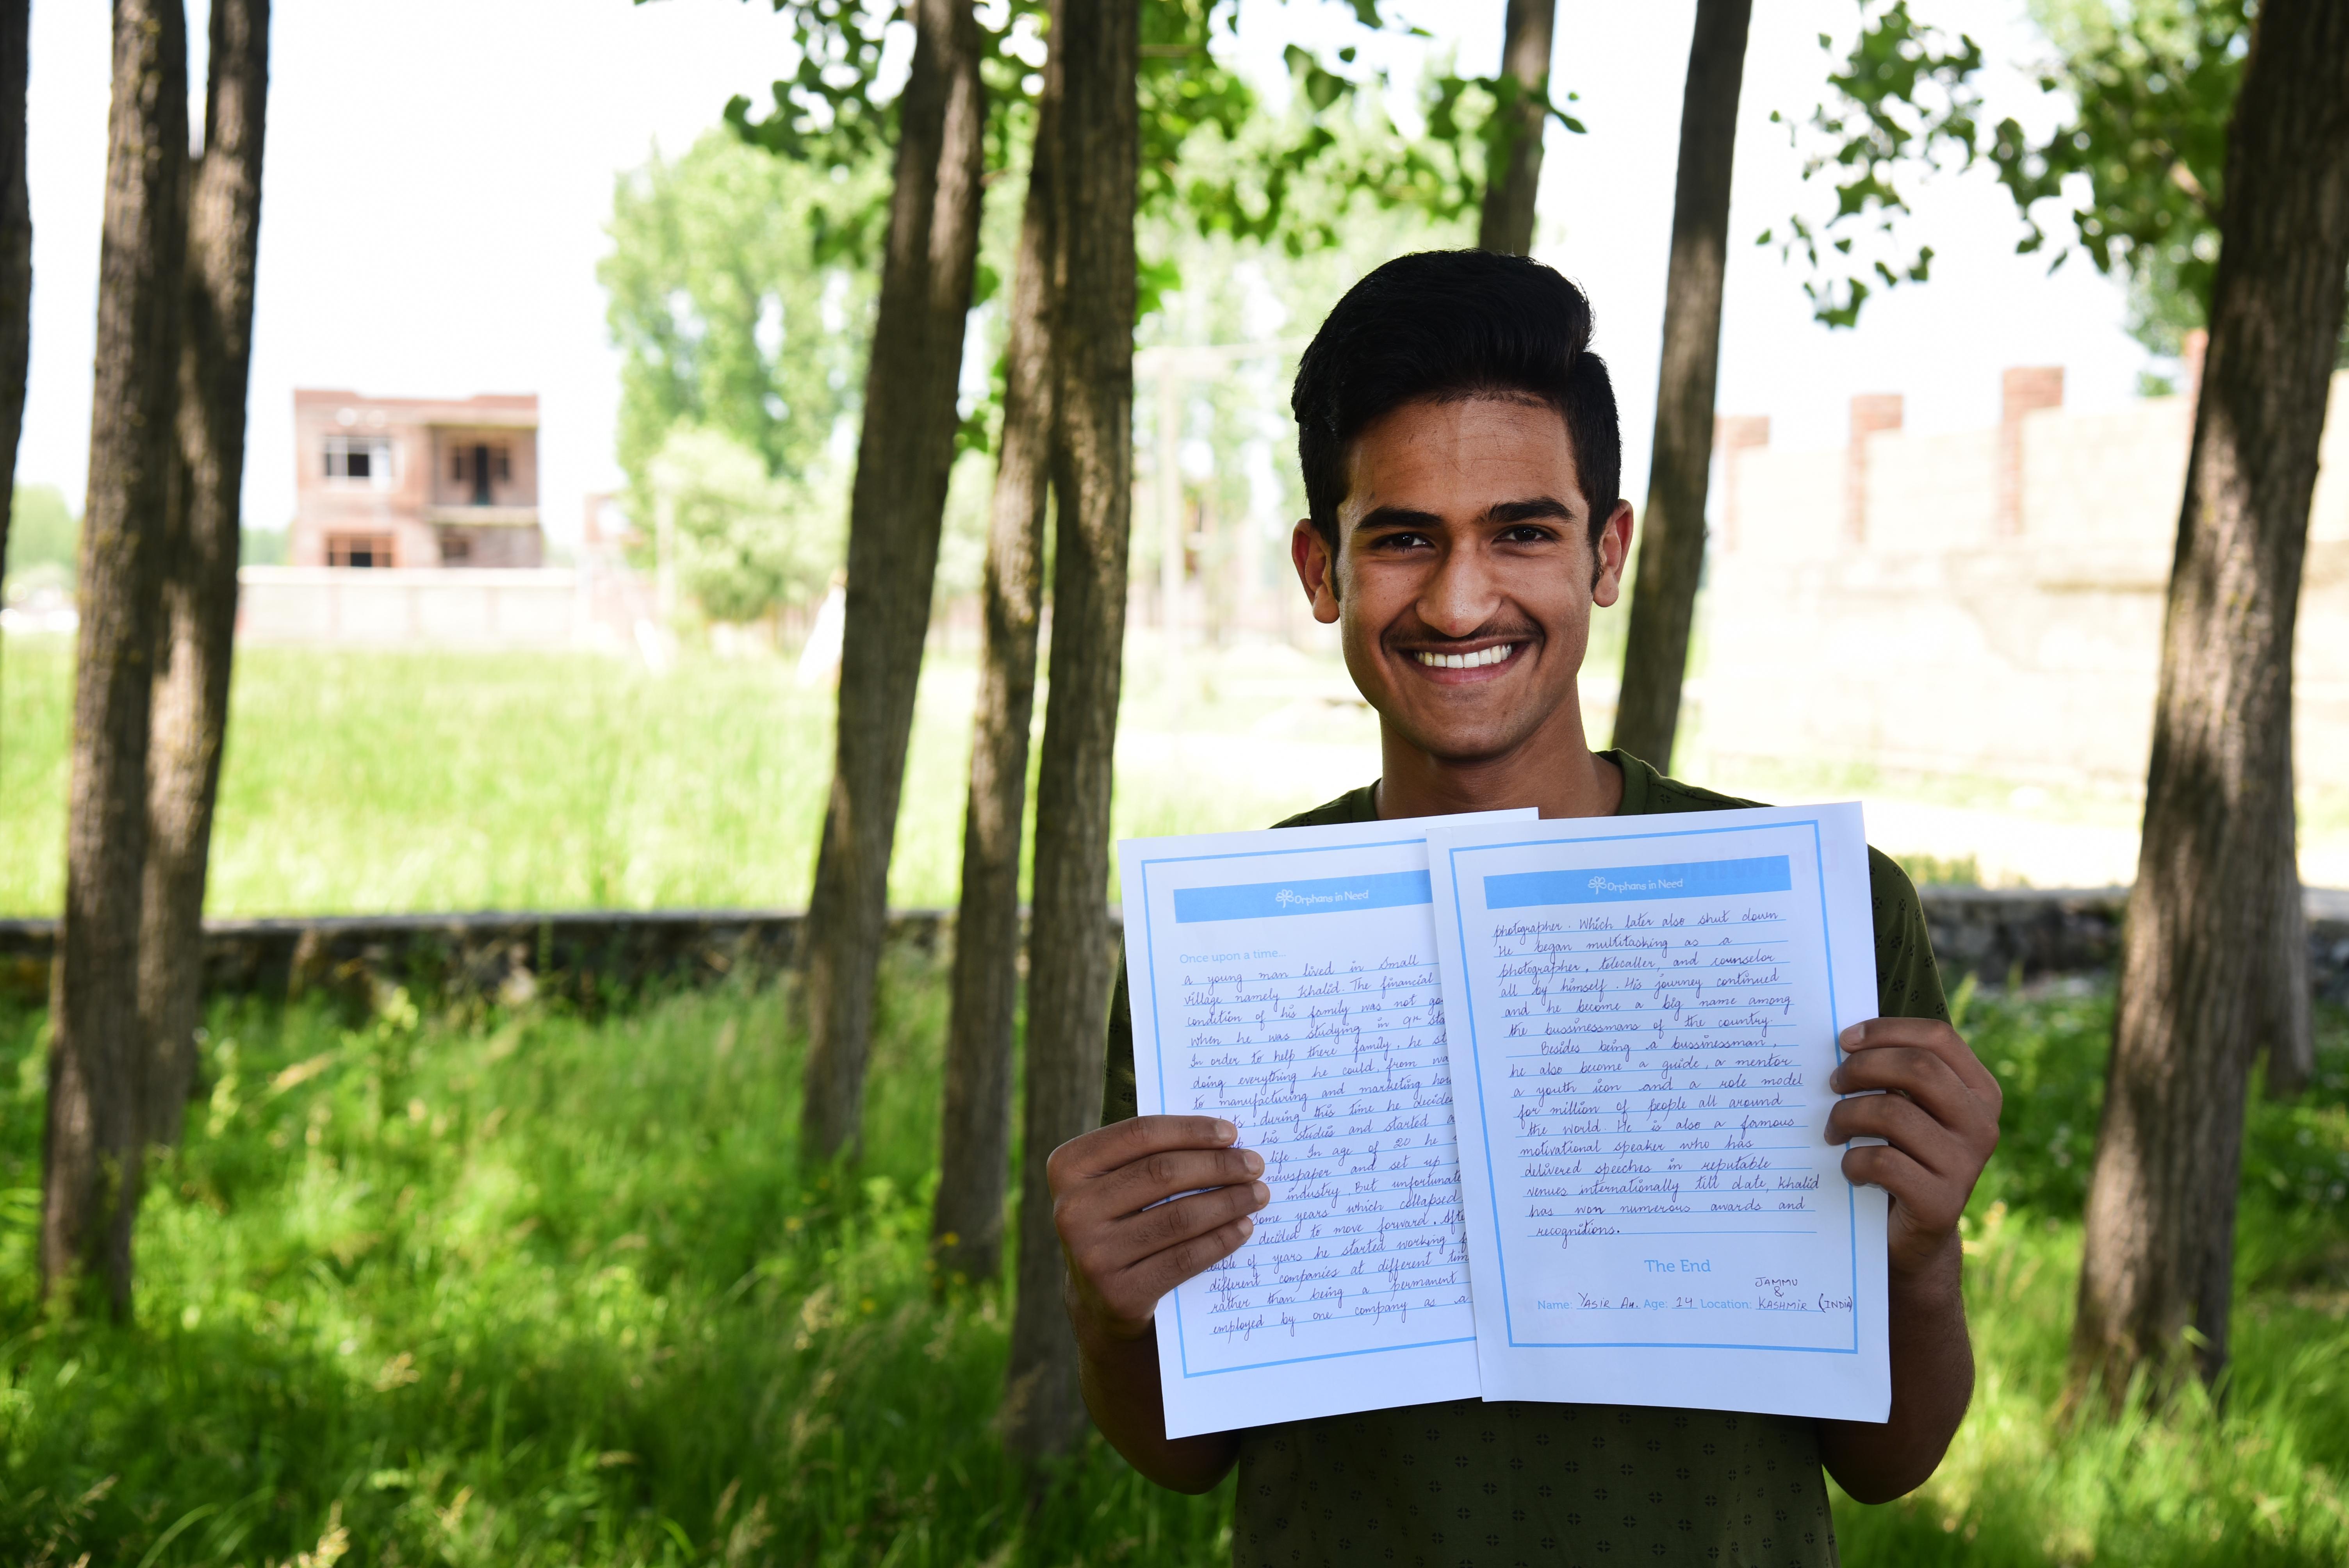 Orphans in Need
Once upon a time...
a young man lived in small
village namely Khalid. The financial
condition of his family was not go
when he was studying in 9th sta
In order to help there family, he st
doing everything he could, from wa
to manufacturing and marketing hos
ts, during this time he decide
his studies and started a
life. In age of 20 he
newspaper and set up
industry. But unfortunate
some years which collapsed
decided to move forward. Afte
ouple of years he started working f
different companies at different tim
rather than being a permanent
employed by one company as a
Orphans in Need
photographer. Which later also shut down
He began multitasking as a
photographer, telecaller and counselor
all by himself. His journey continued
and he become a big name among
the bussinessmans of the country.
Besides being a bussinessman,
he also become a guide, a mentor
a youth icon and a role model
for million of people all around
the world. He is also a famous
motivational speaker who has
delivered speeches in reputable
venues internationally till date, Khalid
has won numerous awards and
recognitions.
The End
JAMMU
&
Name: YASIR AH. Age: 14 Location: KASHMIR (INDIA)